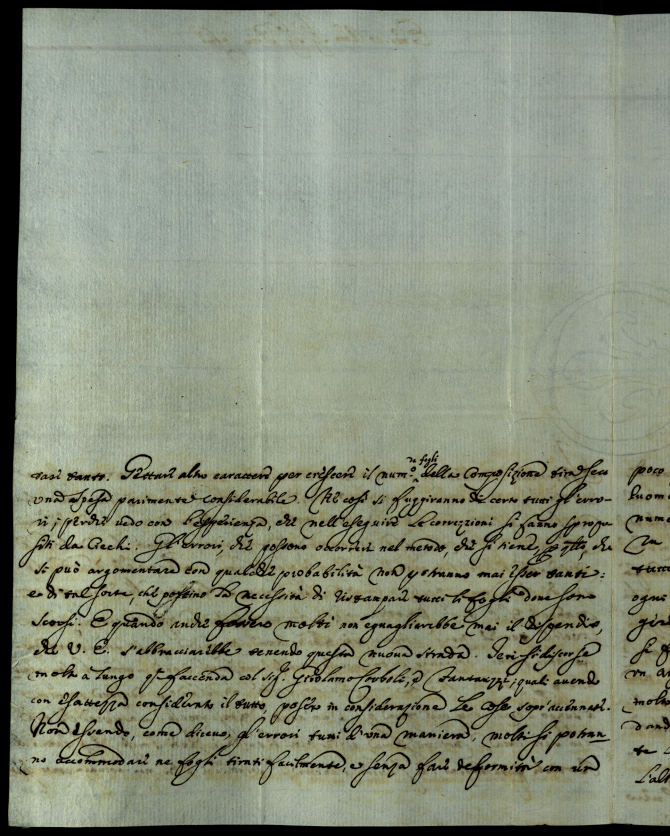 tari tanto. Gettare altro carattere per crescere il num.o de fogli della Composizione tira seco
una spesa parimente considerabile. Ne così si fuggiranno de certo tutti gl'erro-
ri; perche vedo con l'esperienza, che nell'eseguire le correzioni si fanno spropo-
siti da Ciechi. Gl'errori, che possono occorrere nel metodo, che si tiene, che
si può argomentare con qualche probabilità non potranno mai esser tanti:
e di tal sorte, che portino la necessità di ristampare tutti li fogli dove sono
scorsi. E quando anche fossero molti non eguagliarebbe mai il dispendio,
che V. E. s'abbracciarebbe tenendo questa nuova strada. Ieri si discorse
molto a lungo q.a faccenda col Sig.r Girolamo e quali avendo
con esattezza considerato il tutto, posero in considerazione le cose sopr'accennate.
Non essendo, come diceva, gl'errori tutti d'una maniera, molti si potran-
no accommodare ne fogli tirati facilmente, e senza fare deformità con una
poco
huom
num
In
tutt
ogni
gior
si
un a
molt
dand
te
L'al